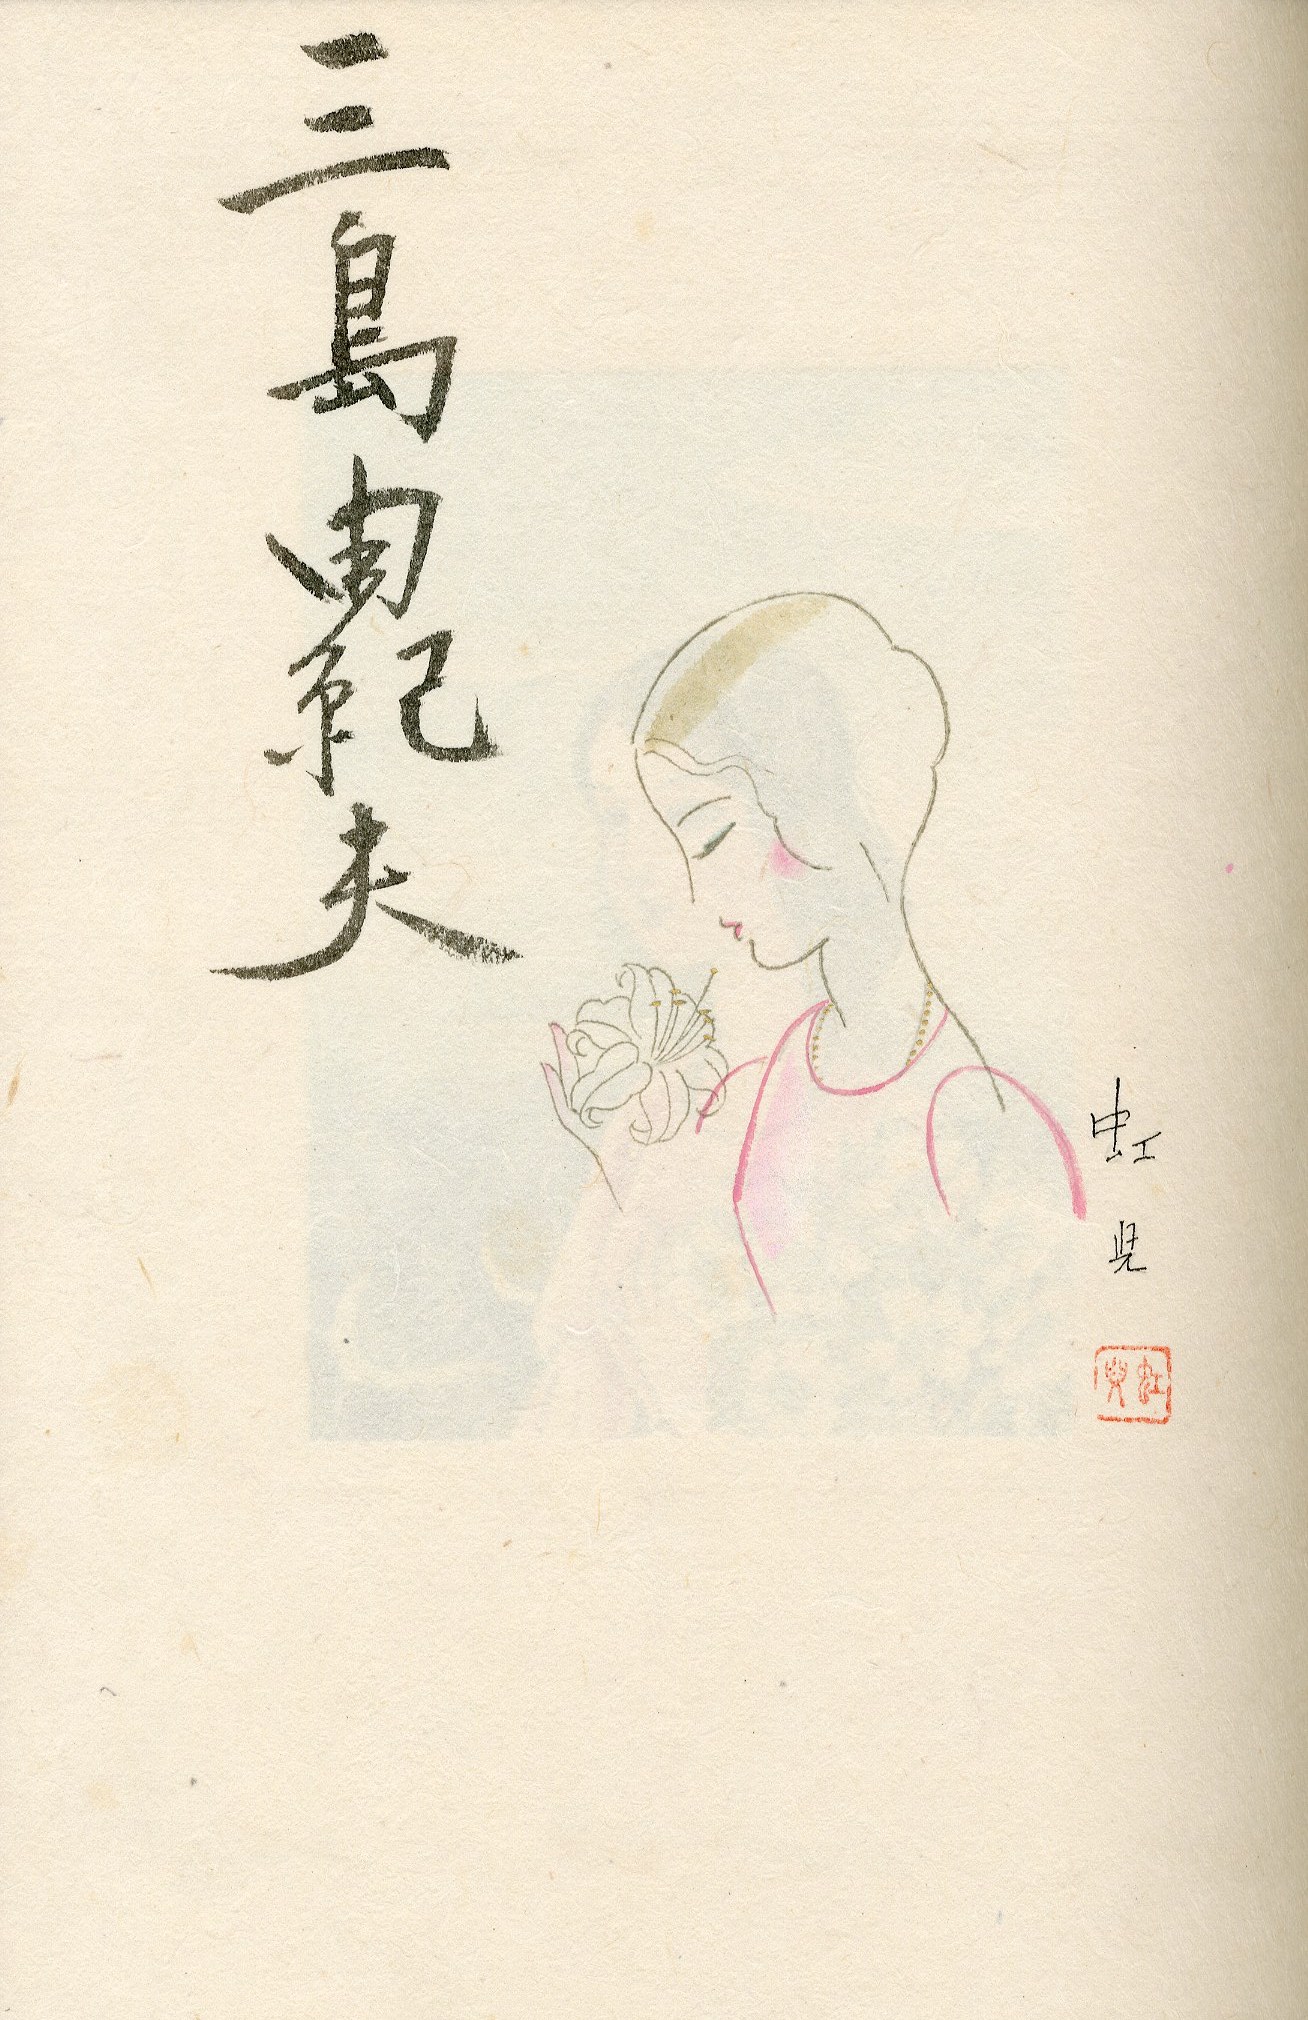 三島由紀夫
虹児
虹児